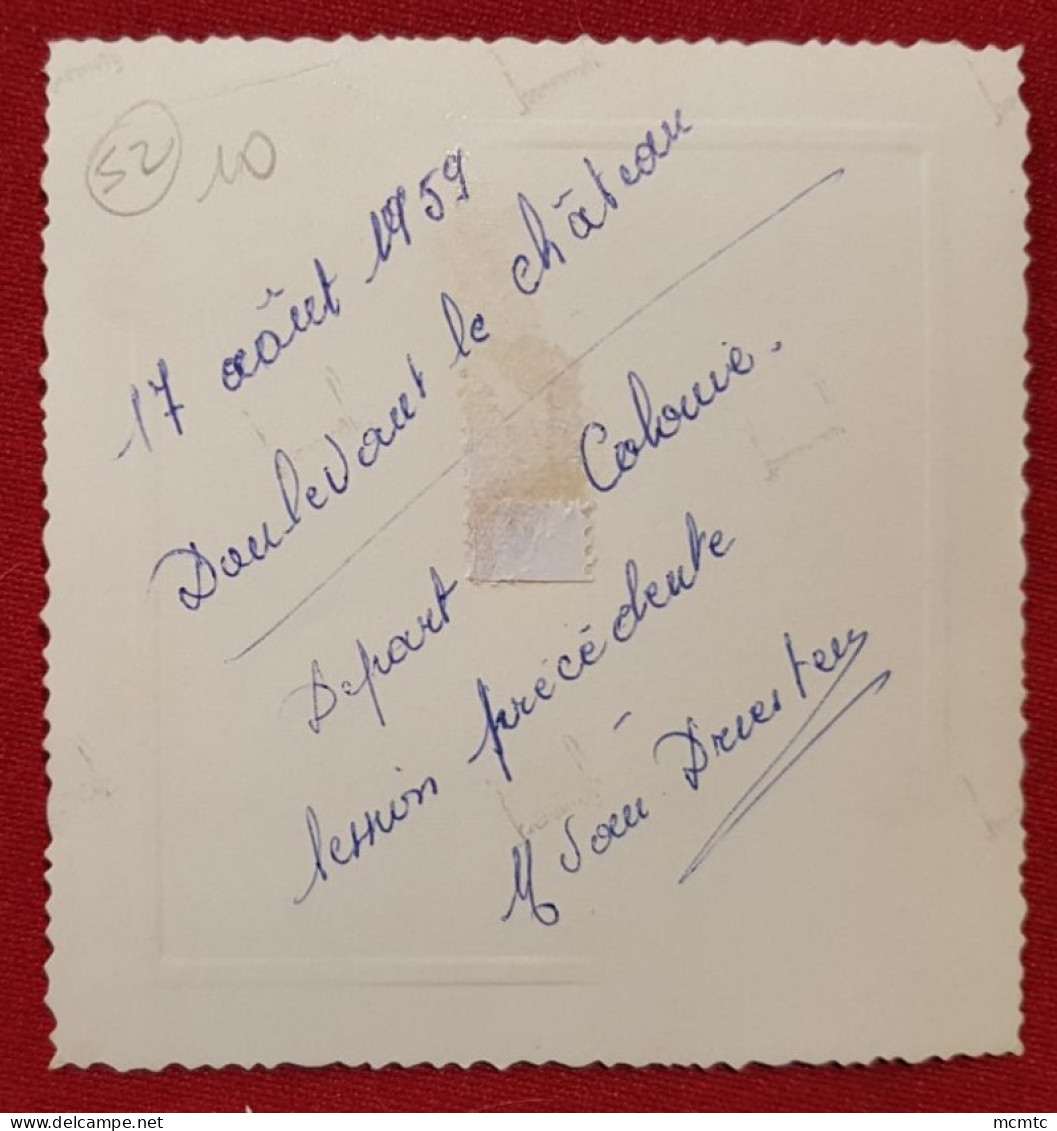 52 10
17 aôut 1959
Doulevant le château
Depart Colonie.
session précédente
M
mcmtc